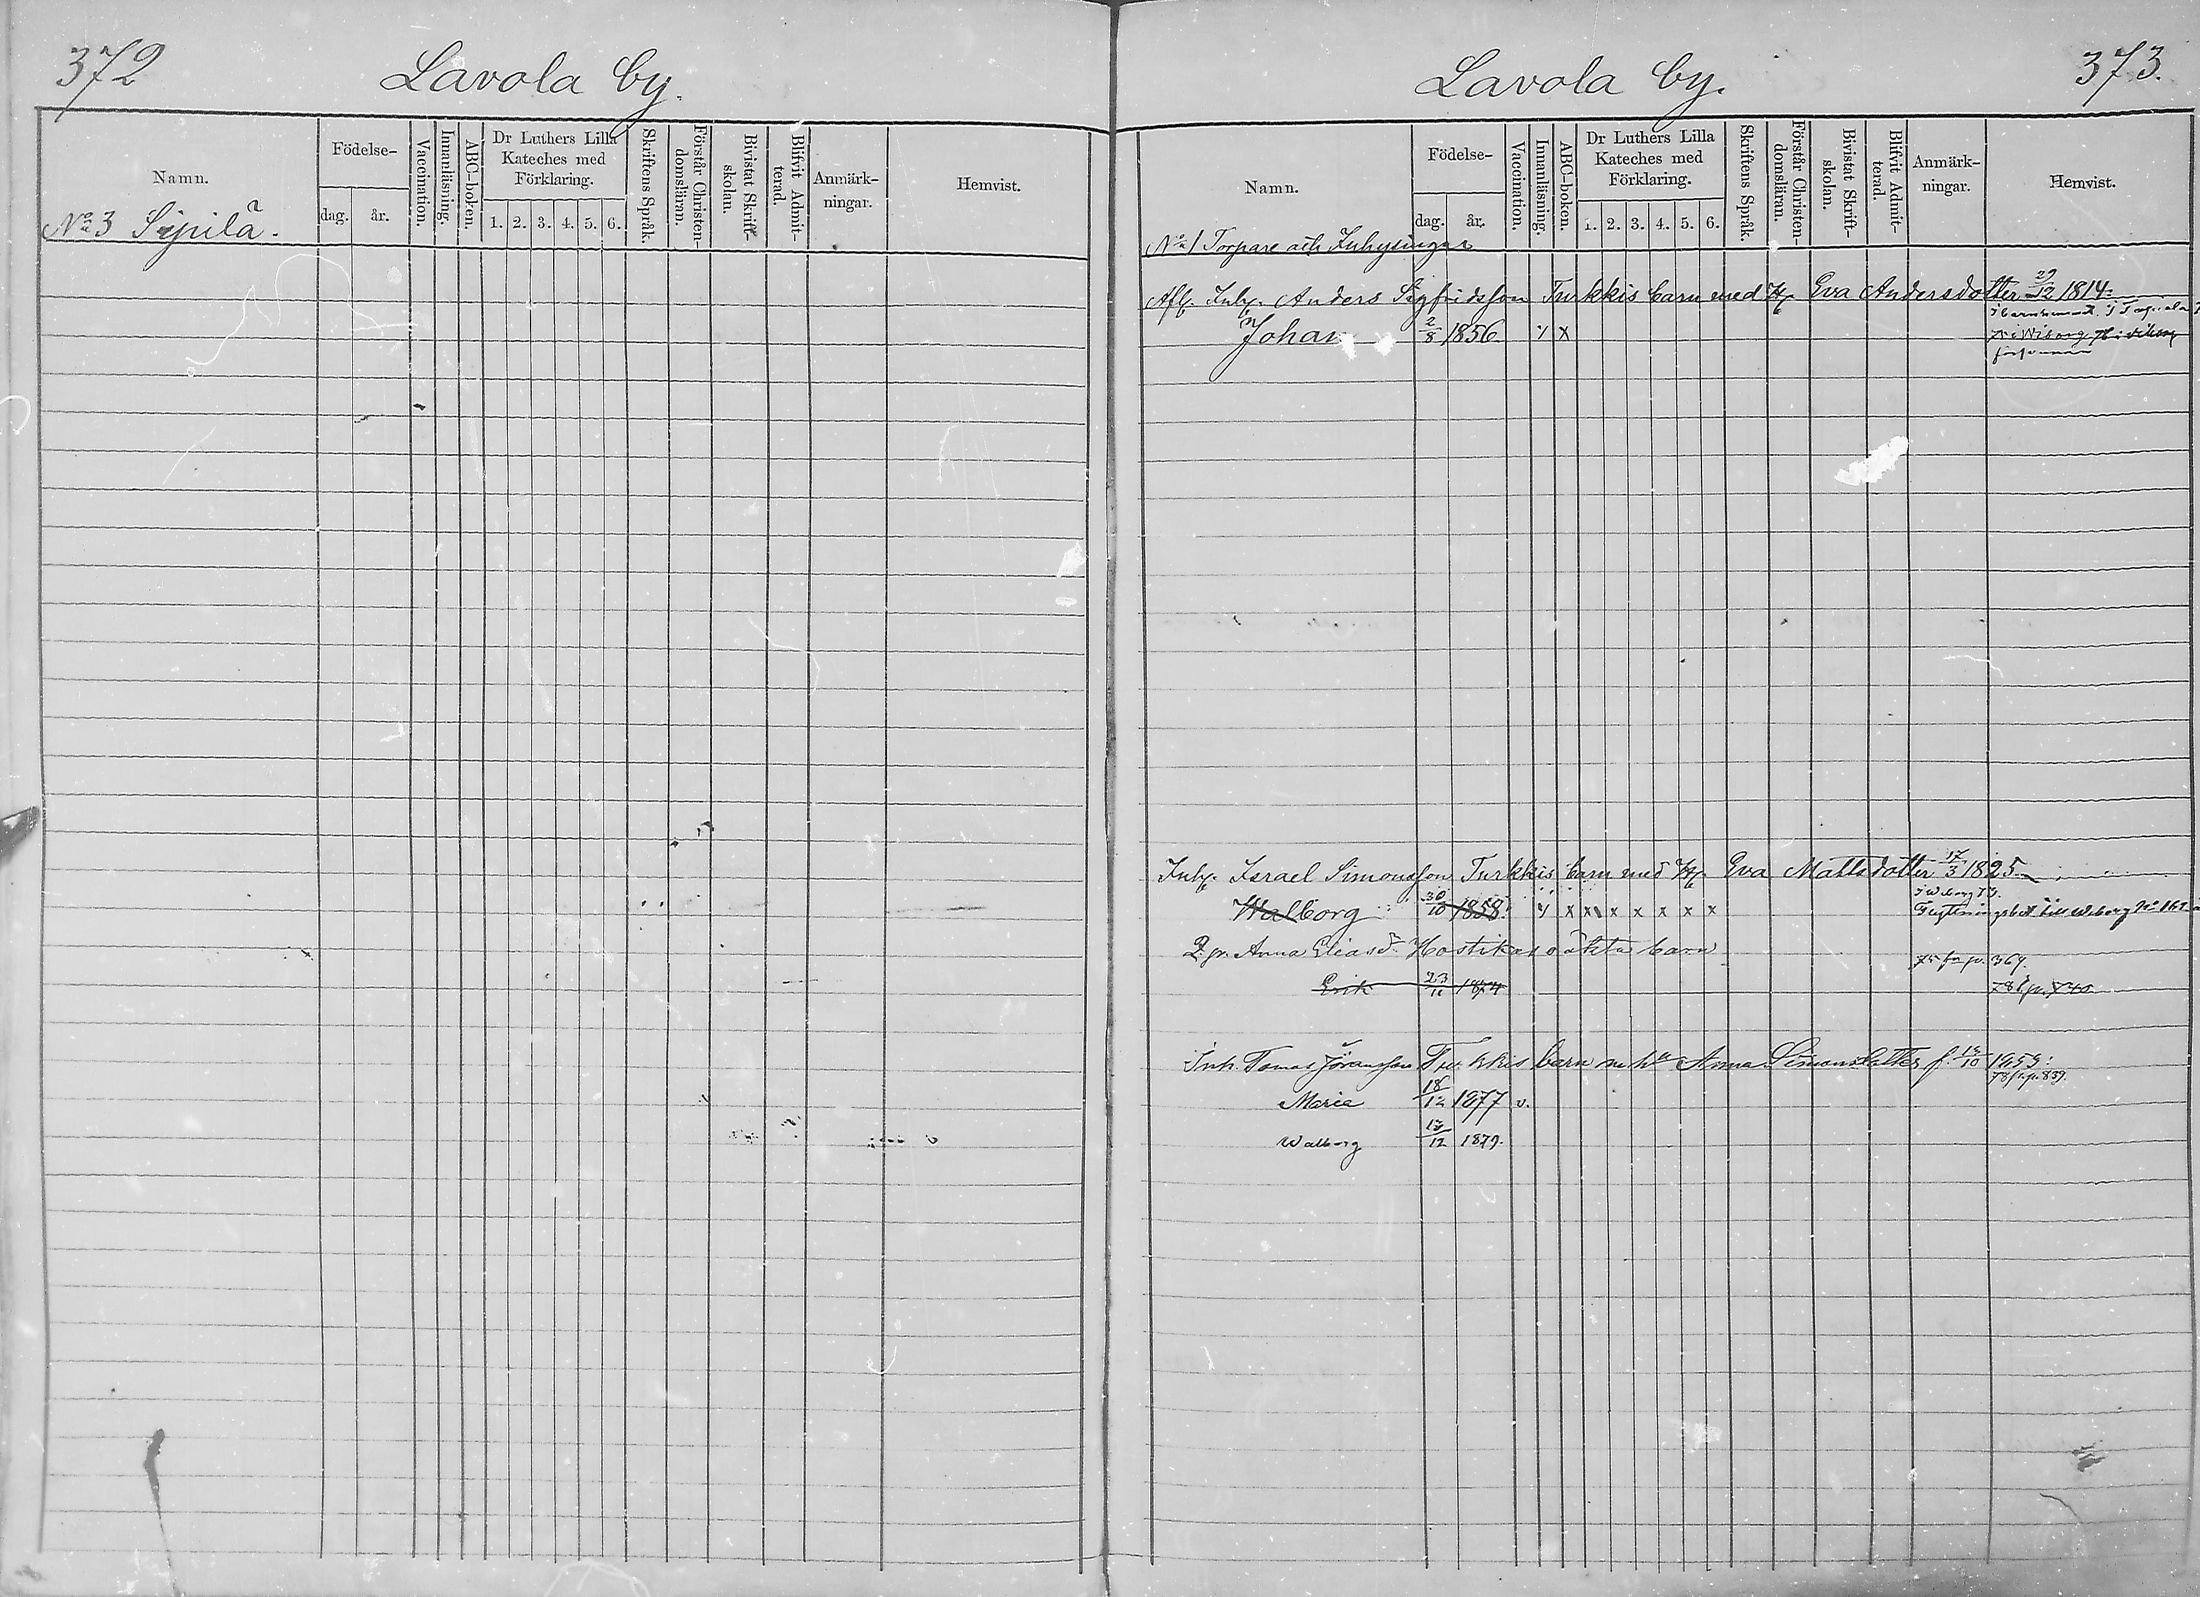 372
Lavola by.
Namn.
Födelse-
dag.
år.
Vaccination.
Innanläsning.
ABC-boken.
Dr Luthers Lilla
Kateches med
Förklaring.
1. 2. 3. 4. 5. 6.
Skriftens Språk.
Förstår Christen-
domsläran.
Bivistat Skrift-
skolan.
Blifvit Admit-
terad.
Anmärk-
ningar.
Hemvist.
No 3 Sipilä.
373.
Lavola by.
Namn.
Födelse-
dag.
år.
Vaccination.
Innanläsning.
ABC-boken.
Dr Luthers Lilla
Kateches med
Förklaring.
1. 2. 3. 4. 5. 6.
Skriftens Språk.
Förstår Christen-
domsläran.
Bivistat Skrift-
skolan.
Blifvit Admit-
terad.
Anmärk-
ningar.
Hemvist.
No 1 Torpare och Inhysingar
Afl. Inh. Anders Sigfridsson Turkkis barn med H. Eva Andersdotter 29/12 1814:
Johan 2/8 1856 y x
försvunnen
Inh. Israel Simonsson Turkkis barn med H. Eva Mattsdotter 17/3 1825
Walborg 30/10 1858 y x x x x x x x Flyttningsbet. till Wiborg No 161
Anna Eliasd:r Hostikas oäkta barn p. 369.
Erik 23/11 1874 78 p. 740
Inh. Tomas Göransson Turkkis barn m. h. Anna Simonsdotter f. 12/10 1853:
78 fr. p. 839.
Maria 18/12 1877 v.
Walborg 13/12 1879.